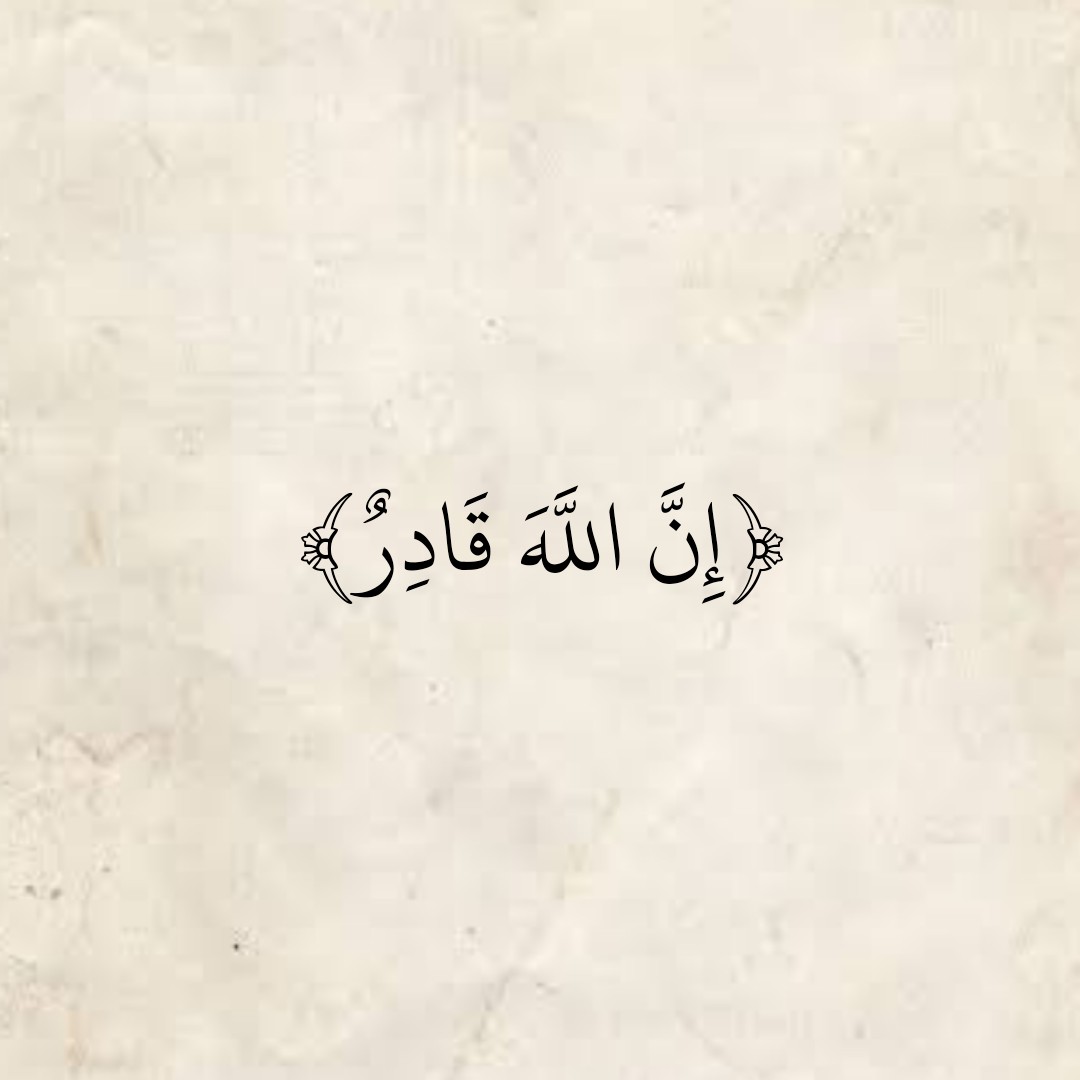 ﴿إِنَّ اللَّهَ قَادِرٌ﴾